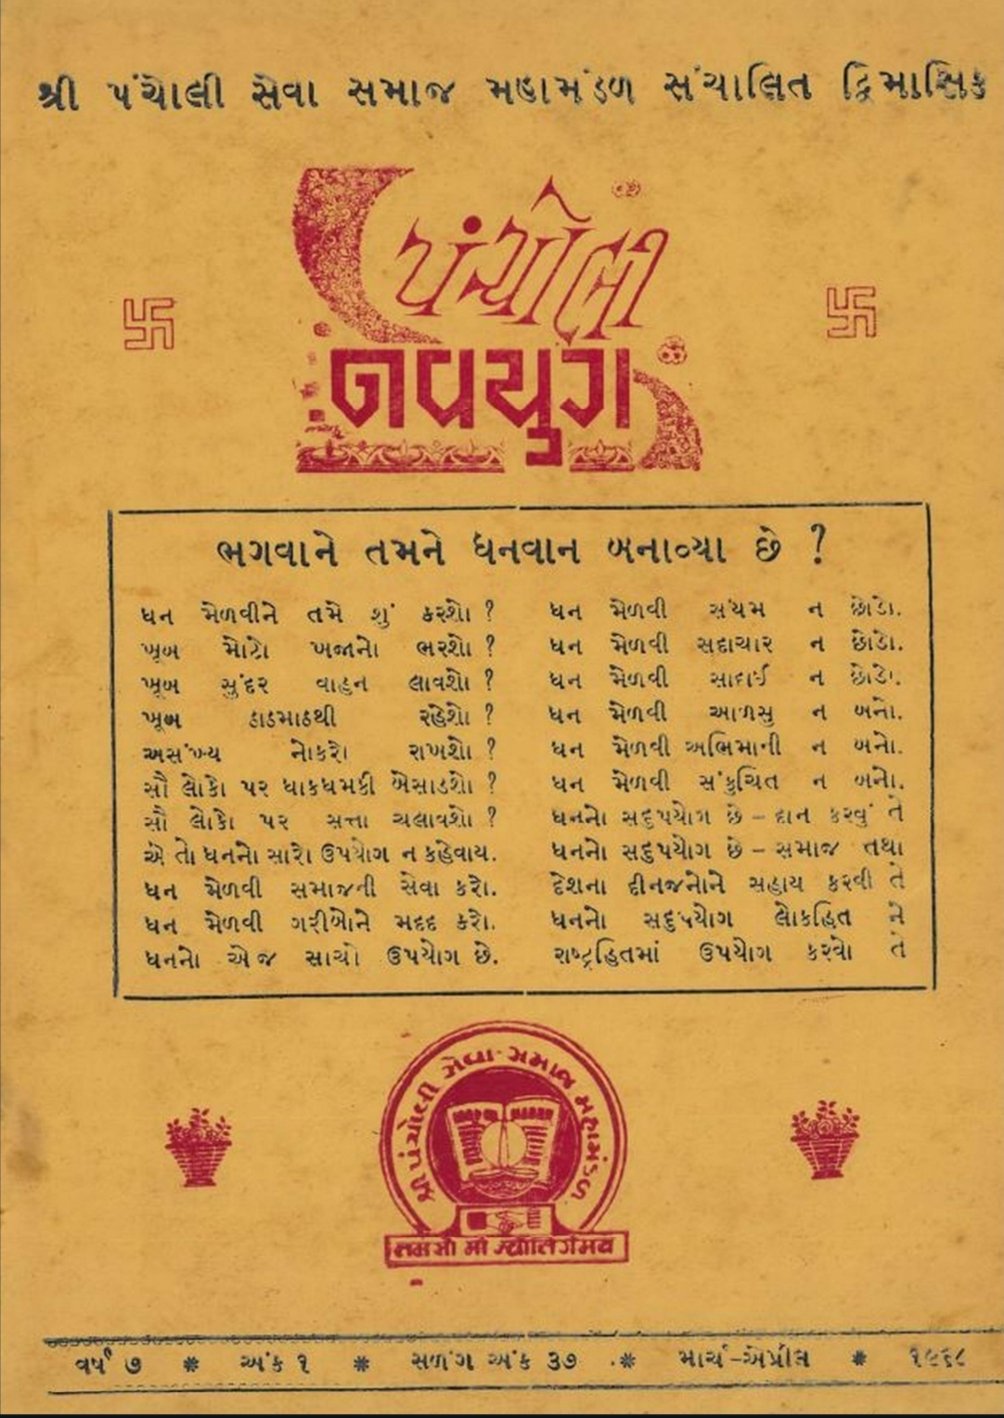 શ્રી પંચોલી સેવા સમાજ મહામંડળ સંચાલિત દ્વિમાસિક
પંચોલી
નવયુગ
ભગવાને તમને ધનવાન બનાવ્યા છે ?
ધન મેળવીને તમે શું કરશો ?
ખૂબ મોટો ખજાનો ભરશો ?
ખૂબ સુંદર વાહન લાવશો ?
ખૂબ ઠાઠમાઠથી રહેશો ?
અસંખ્ય નોકરો રાખશો ?
સૌ લોકો પર ધાકધમકી બેસાડશો ?
સૌ લોકો પર સત્તા ચલાવશો ?
એ તો ધનનો સારો ઉપયોગ ન કહેવાય.
ધન મેળવી સમાજની સેવા કરો.
ધન મેળવી ગરીબોને મદદ કરો.
ધનનો એજ સાચો ઉપયોગ છે.
ધન મેળવી સંયમ ન છોડો.
ધન મેળવી સદાચાર ન છોડો.
ધન મેળવી સાદાઈ ન છોડો.
ધન મેળવી આળસુ ન બનો.
ધન મેળવી અભિમાની ન બનો.
ધન મેળવી સંકુચિત ન બનો.
ધનનો સદુપયોગ છે – દાન કરવું તે
ધનનો સદુપયોગ છે – સમાજ તથા
દેશના દીનજનોને સહાય કરવી તે
ધનનો સદુપયોગ લોકહિત ને
રાષ્ટ્રહિતમાં ઉપયોગ કરવો તે
શ્રી પંચોલી સેવા-સમાજ મહામંડળ
તમસો મા જ્યોતિર્ગમય
વર્ષ ૭ * અંક ૧ * સળંગ અંક ૩૭ * માર્ચ-એપ્રીલ * ૧૯૬૮